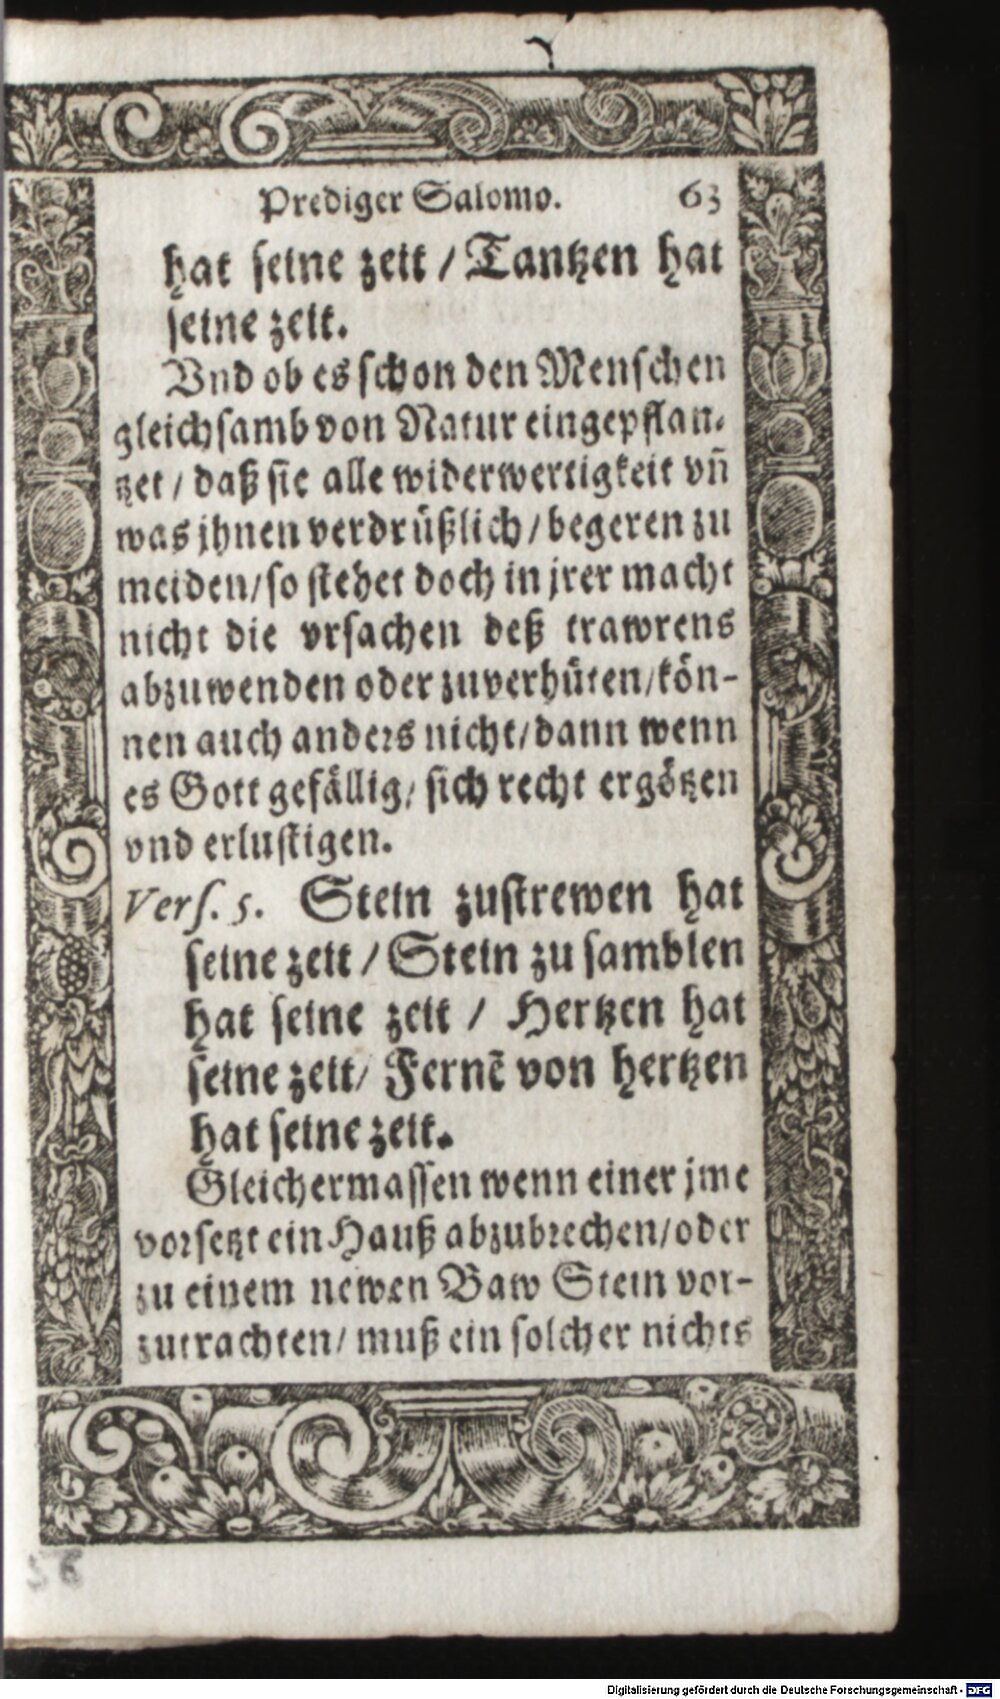 Prediger Salomo. 63
hat seine zeit / Tantzen hat
seine zeit.
Vnd ob es schon den Menschen
gleichsamb von Natur eingepflan-
tzet / daß sie alle widerwertigkeit vn̄
was jhnen verdrüßlich / begeren zu
meiden / so stehet doch in jrer macht
nicht die vrsachen deß trawrens
abzuwenden oder zuverhüten / kön-
nen auch anders nicht / dann wenn
es Gott gefällig / sich recht ergötzen
vnd erlustigen.
Vers. 5. Stein zustrewen hat
seine zeit / Stein zu samblen
hat seine zeit / Hertzen hat
seine zeit / Fernē von hertzen
hat seine zeit.
Gleichermassen wenn einer jme
vorsetzt ein Hauß abzubrechen / oder
zu einem newen Baw Stein vor-
zutrachten / muß ein solcher nichts
56
Digitalisierung gefördert durch die Deutsche Forschungsgemeinschaft - DFG